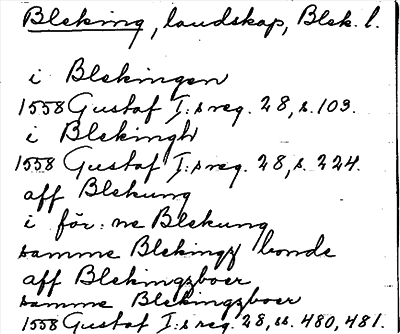 Bleking, landskap, Blek. l.
i Blekingen
1558 Gustaf I:s reg. 28, s. 103.
i Blekingh
1558 Gustaf I:s reg. 28, s. 224.
aff Blekung
i för:ne Blekung
samme Blekingz bonde
aff Blekingzboer
samme Blekingzboer
1558 Gustaf I:s reg. 28, ss. 480, 481.